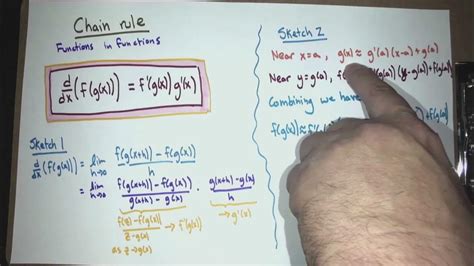 Chain rule
Functions in functions
d/dx (f(g(x))) = f'(g(x)) g'(x)
Sketch 1
d/dx (f(g(x))) = lim h→0 f(g(x+h)) - f(g(x)) / h
= lim h→0 f(g(x+h)) - f(g(x)) / g(x+h) - g(x) · g(x+h) - g(x) / h
→ g'(x)
f(z) - f(g(x)) / z - g(x) → f'(g(x))
as z→g(x)
Sketch 2
Near x=a, g(x) ≈ g'(a)(x-a) + g(a)
Near y=g(a), f( (g(a)) (y-g(a)) + f(g(a))
Combining we have
f(g(x)) ≈ f'( f(g(a))